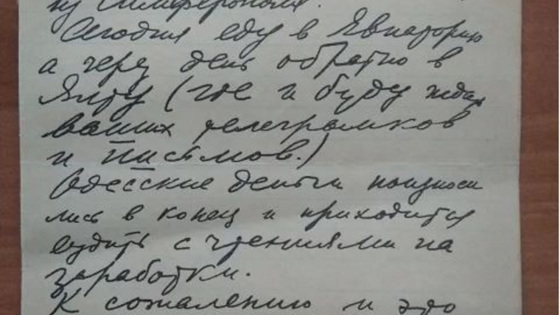 ну Симферополя.
Сегодня еду в Евпаторию
а через день обратно в
Ялту (где и буду ждать
ваших телеграмков
и письмов.)
Одесские деньги поизноси
лись в конец и приходится
ездить с чтениями на
заработки.
К сожалению и это